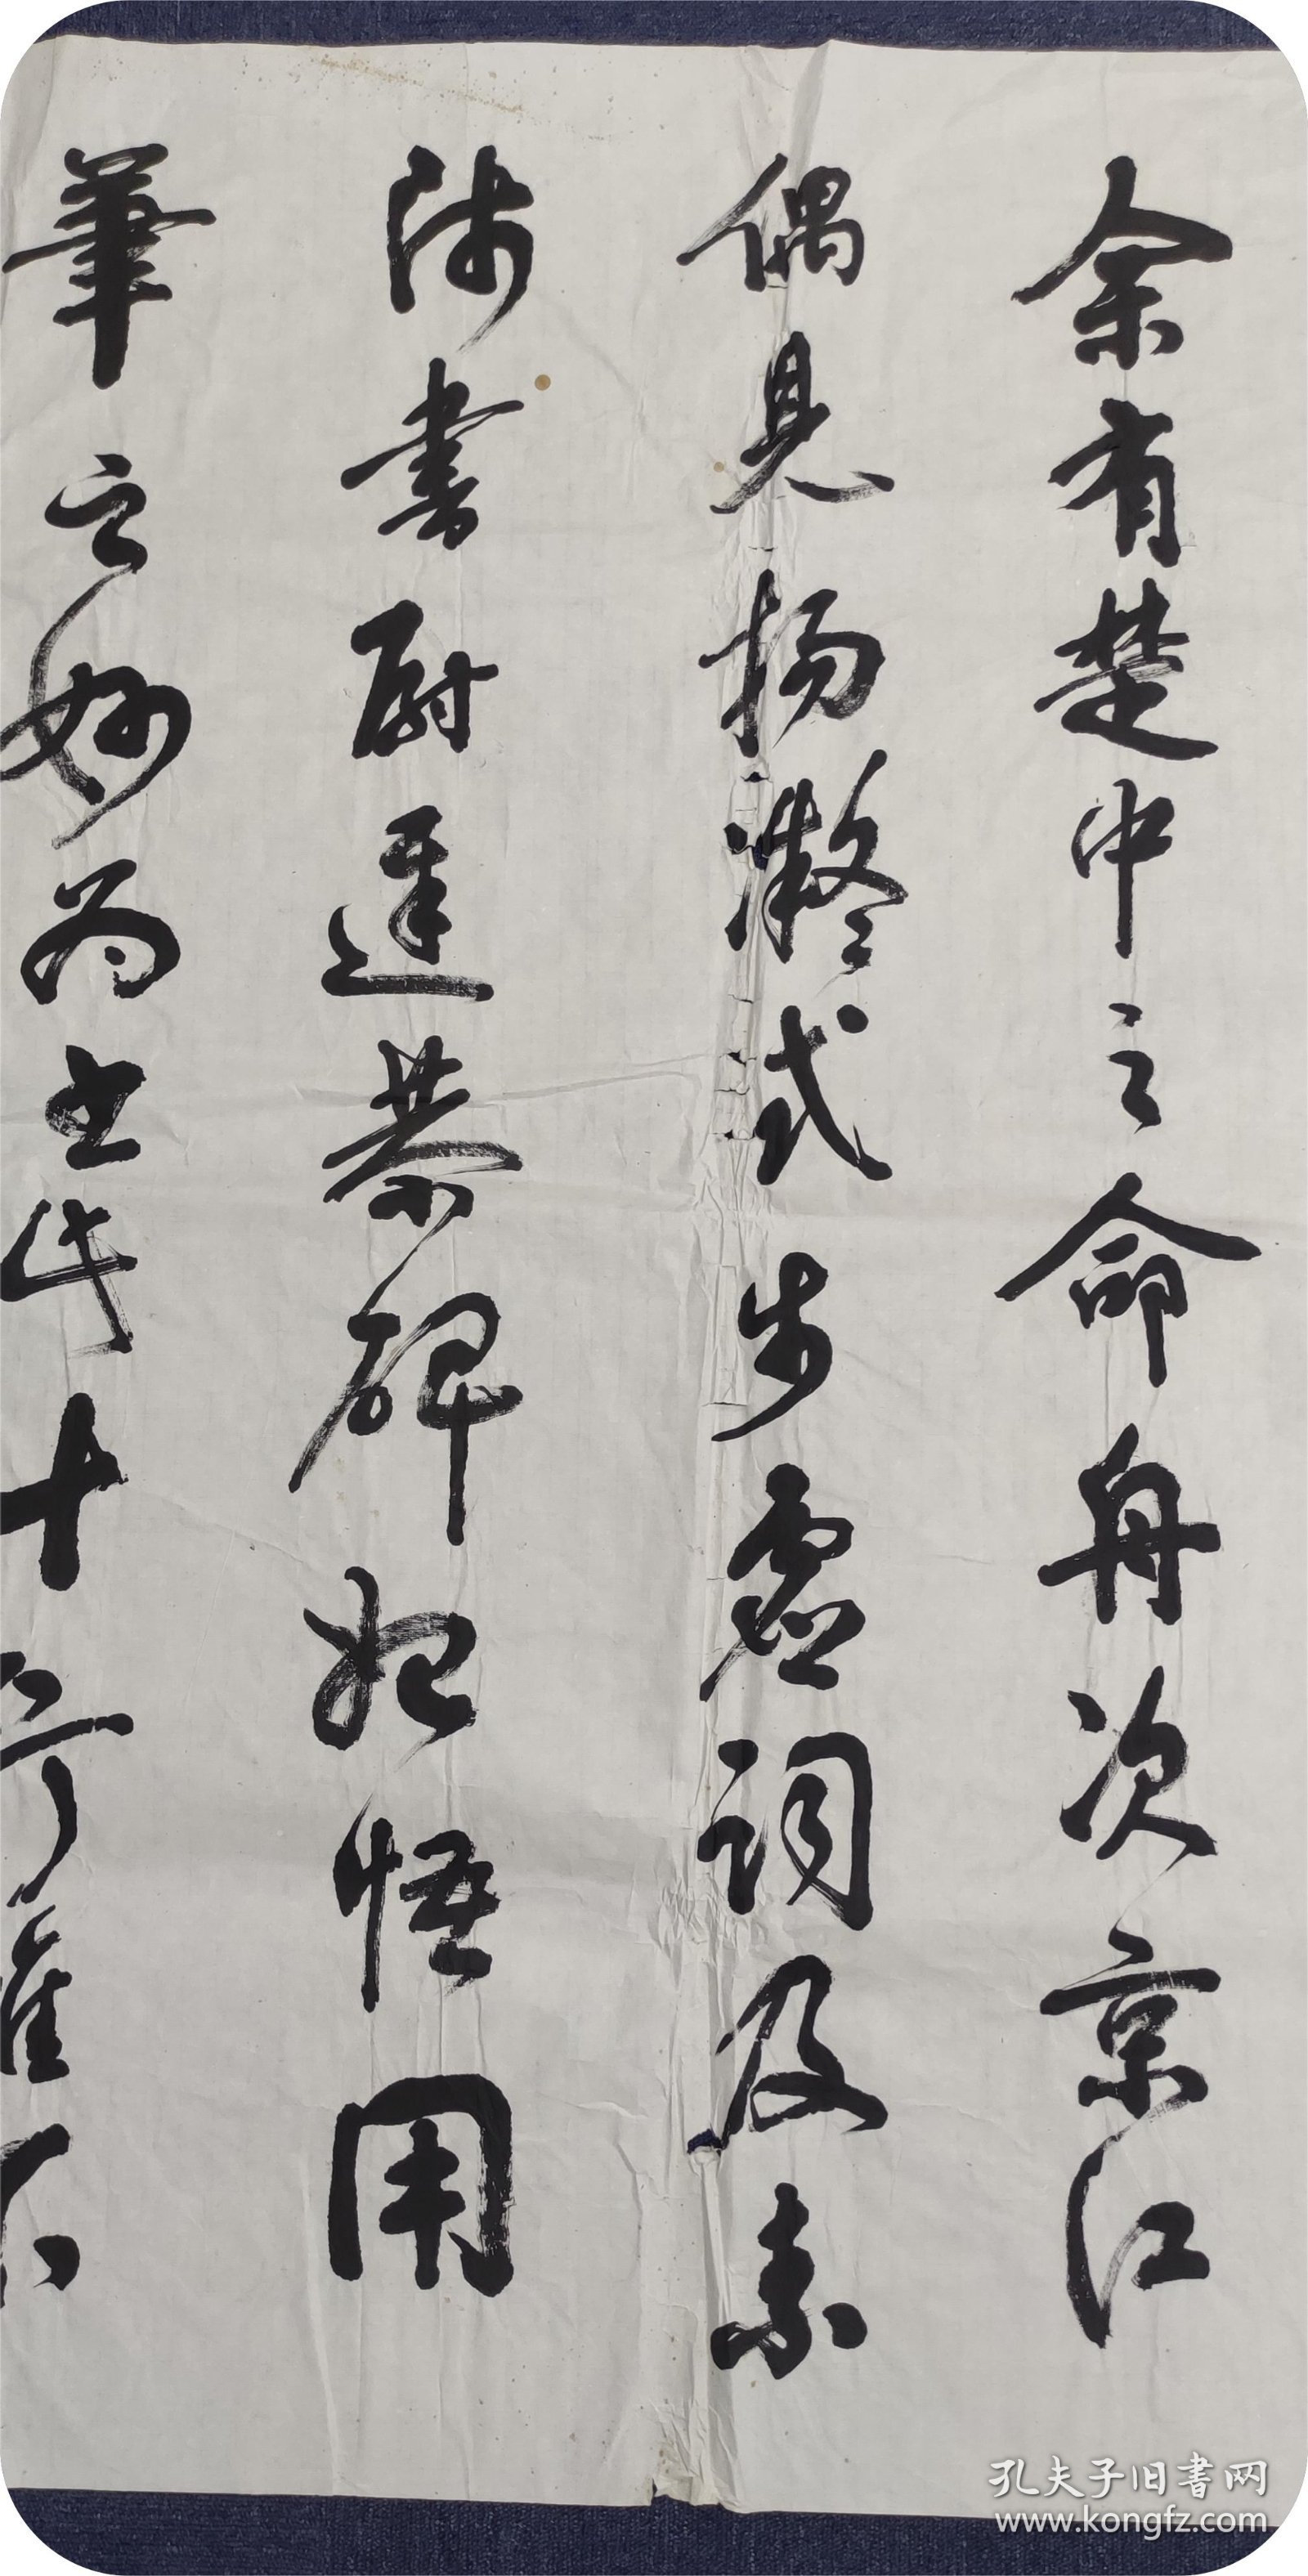 余有楚中之命舟次京江
偶見楊凝式步虛詞及素
師書尉遲恭碑始悟用
筆之妙為
孔夫子旧書网
www.kongfz.com